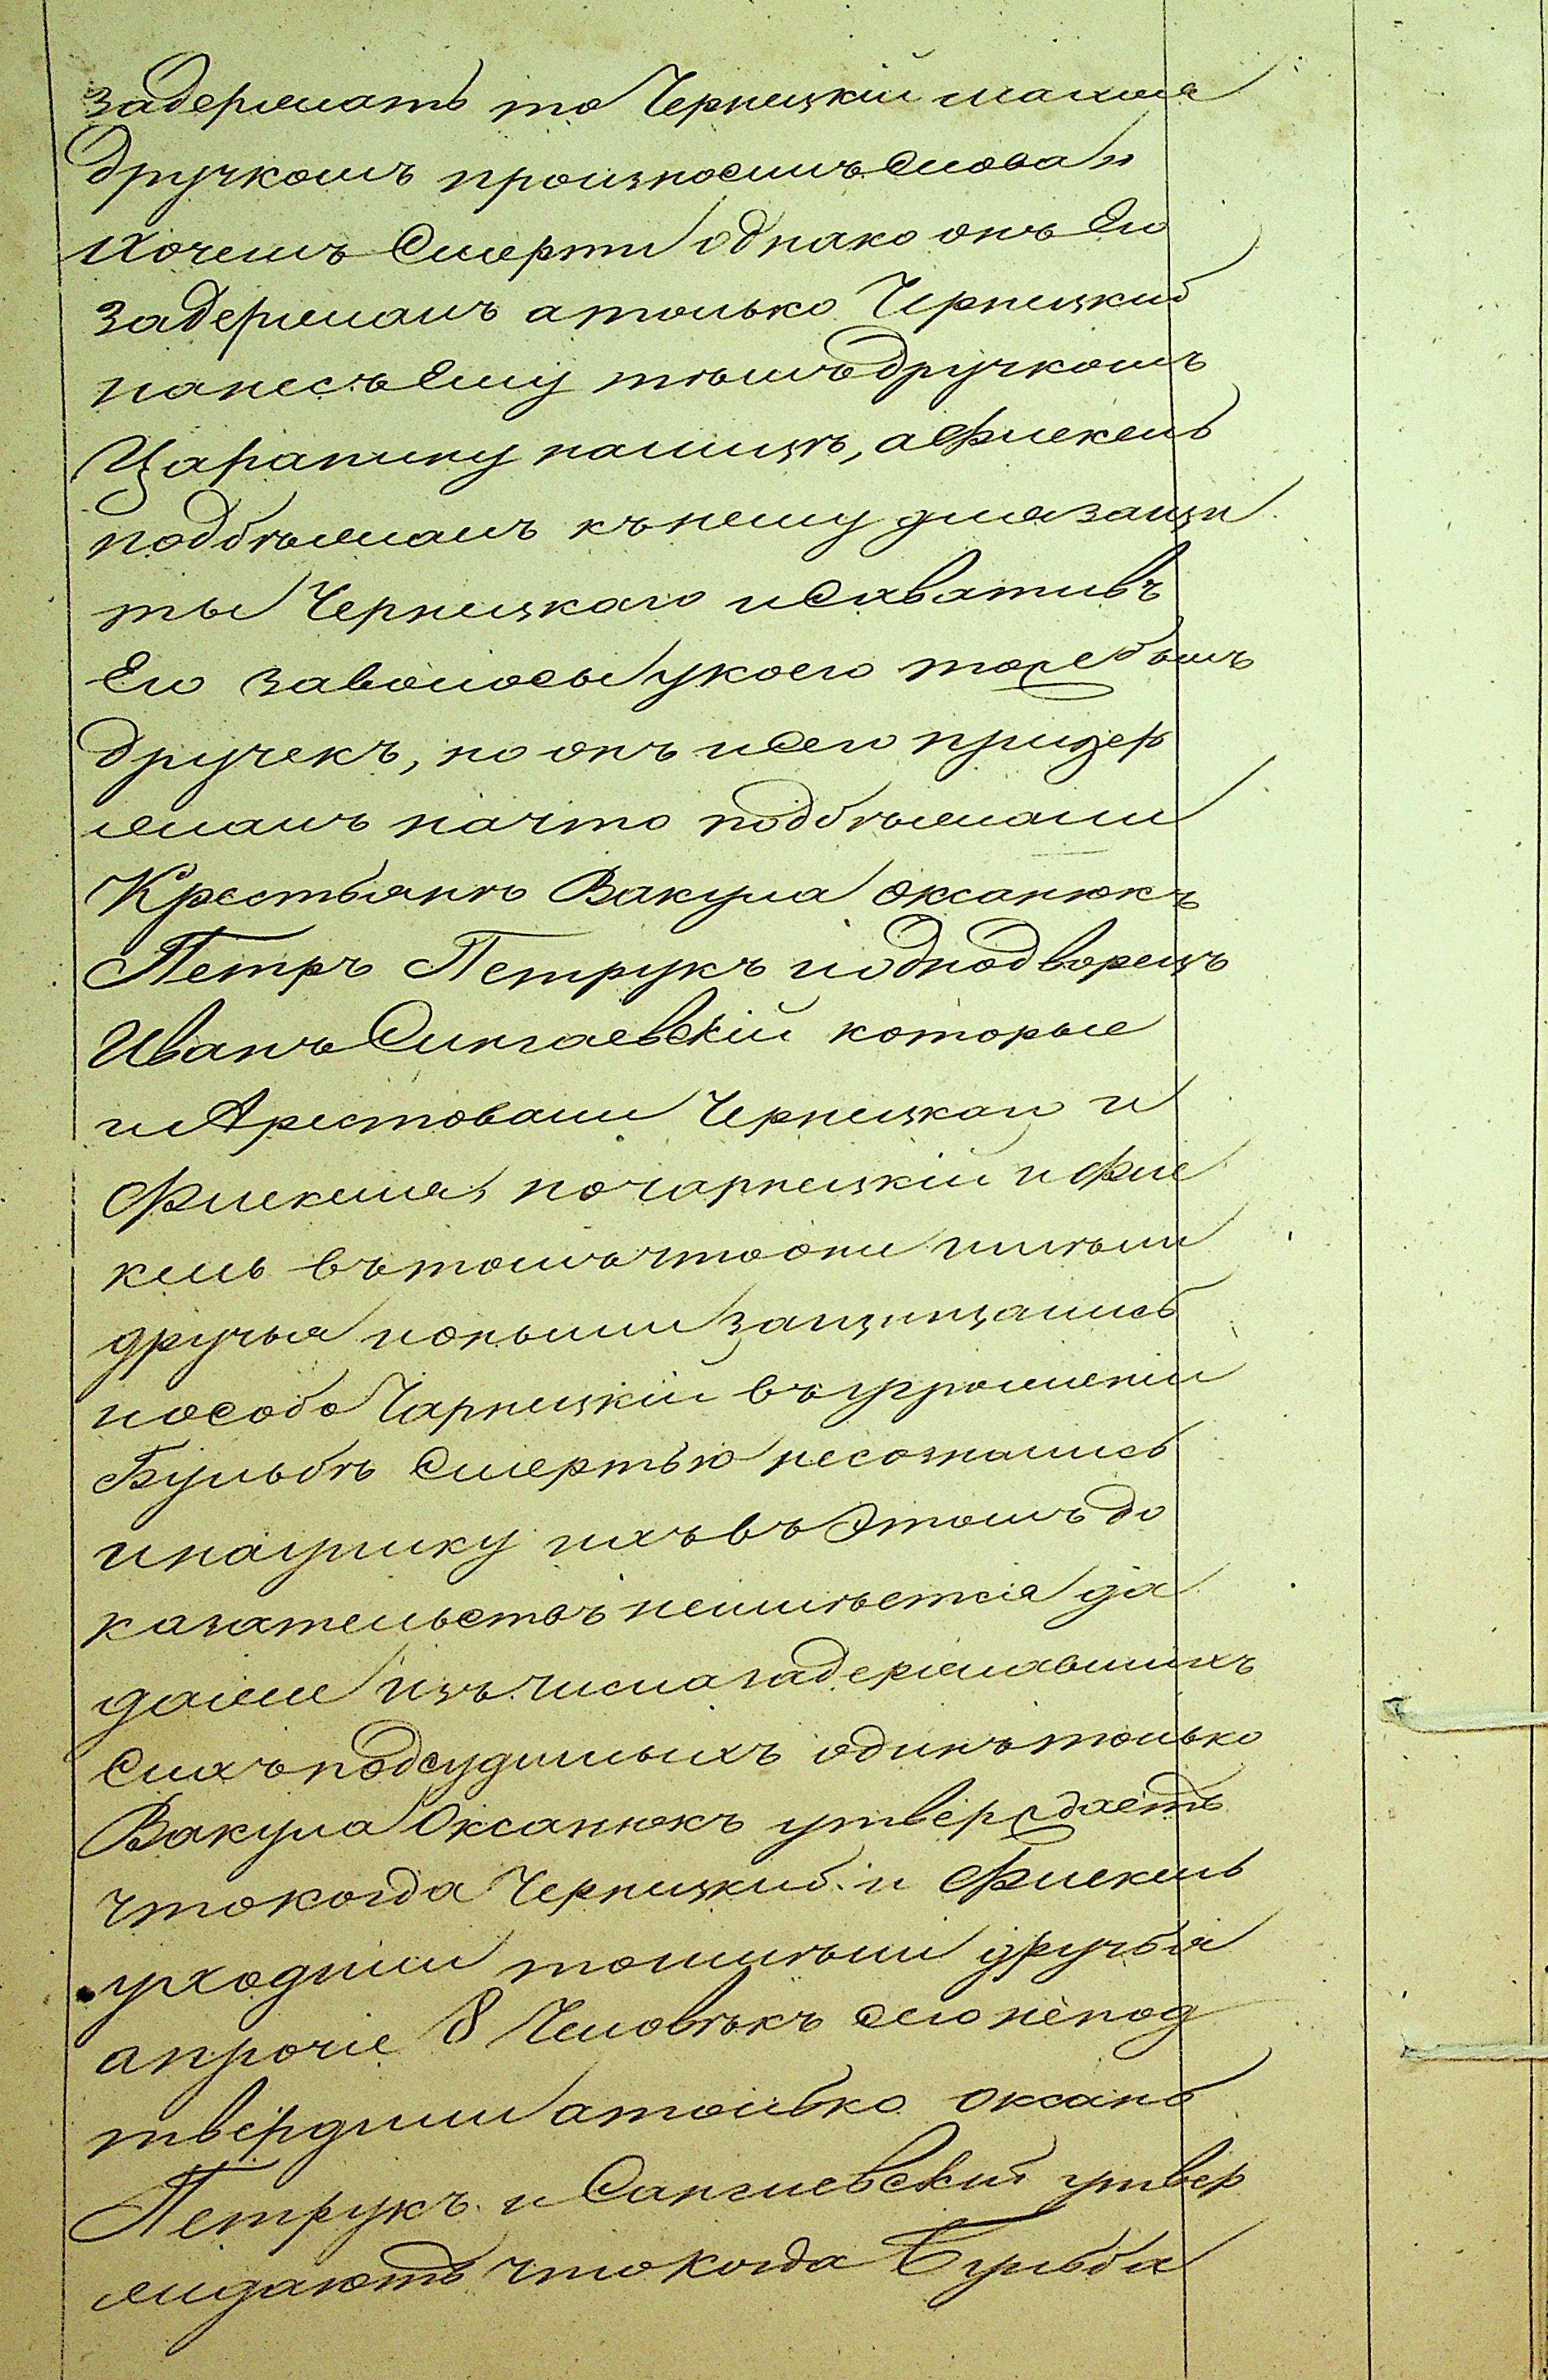 задержать то Чернецкій махая
дручкомъ произносилъ слова и
хочешъ Смерти однако онъ Его
задержалъ атолько Чернецкий
нанесъ Ему тѣмъ дручкомъ
Царапину налицѣ, а Флекель
подбѣжалъ къ нему для защи
ты Чернецкаго и Схвативъ
Его заволосы укоего тоже былъ
дручекъ, но онъ и Сего придер
жалъ начто подбѣжали
Крестьянѣ Вакула Оксанюкъ
Петръ Петрукъ и однодворецъ
Иванъ Сингаевскій которые
и Арестовали Чернецкаго и
Флекеля, но Чарнецкій и Фле
кель въ томъ что они имѣли
дручья и оными защищались
и особо Чарнецкій въ угрошеніи
Бульбѣ Смертью несознались
и наулику ихъ въ Этомъ до
казательствъ неимѣется да
даже изъ числа задержавшихъ
Сихъ подсудимыхъ одинъ только
Вакула Оксанюкъ утверждаетъ
что когда Чернецкий и Флекель
уходили то имѣли дручья
а прочіе 8 Человѣкъ Сего непод
твердили а только Оксаню
Петрукъ и Сангиевский утвер
ждаютъ что когда Бульба